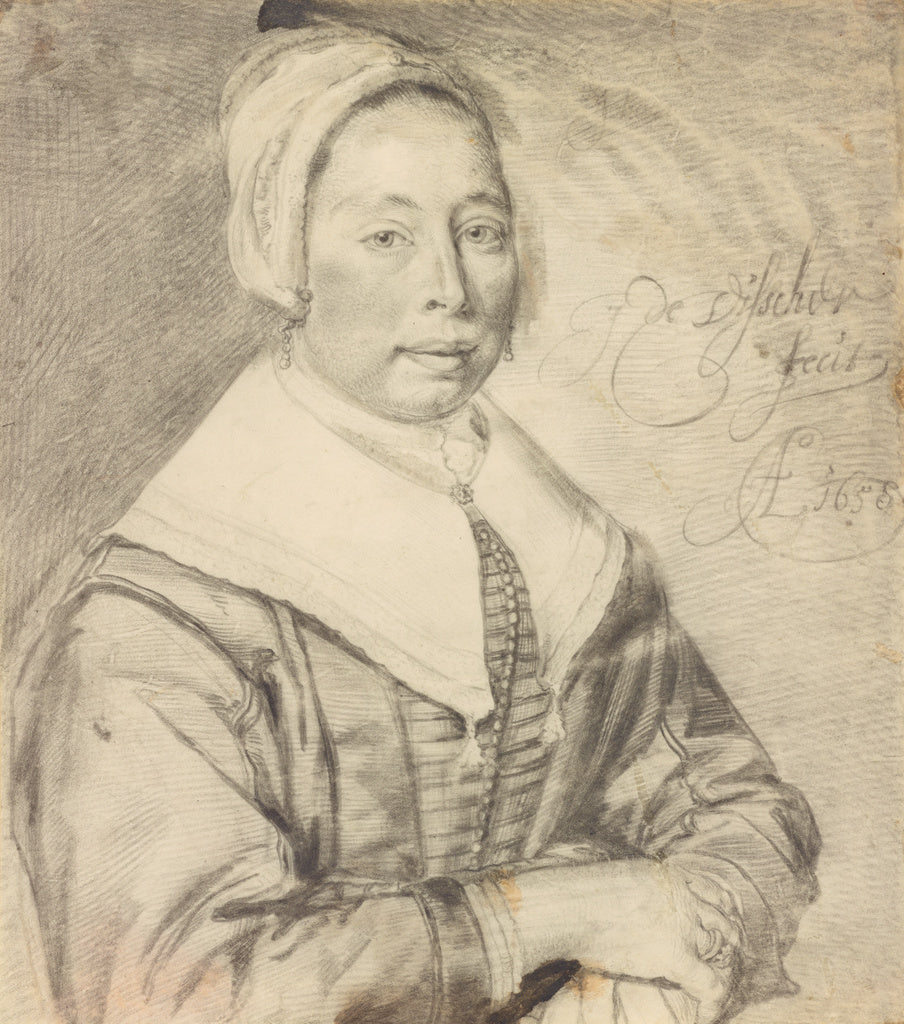 J de Visscher
fecit
Aº 1658